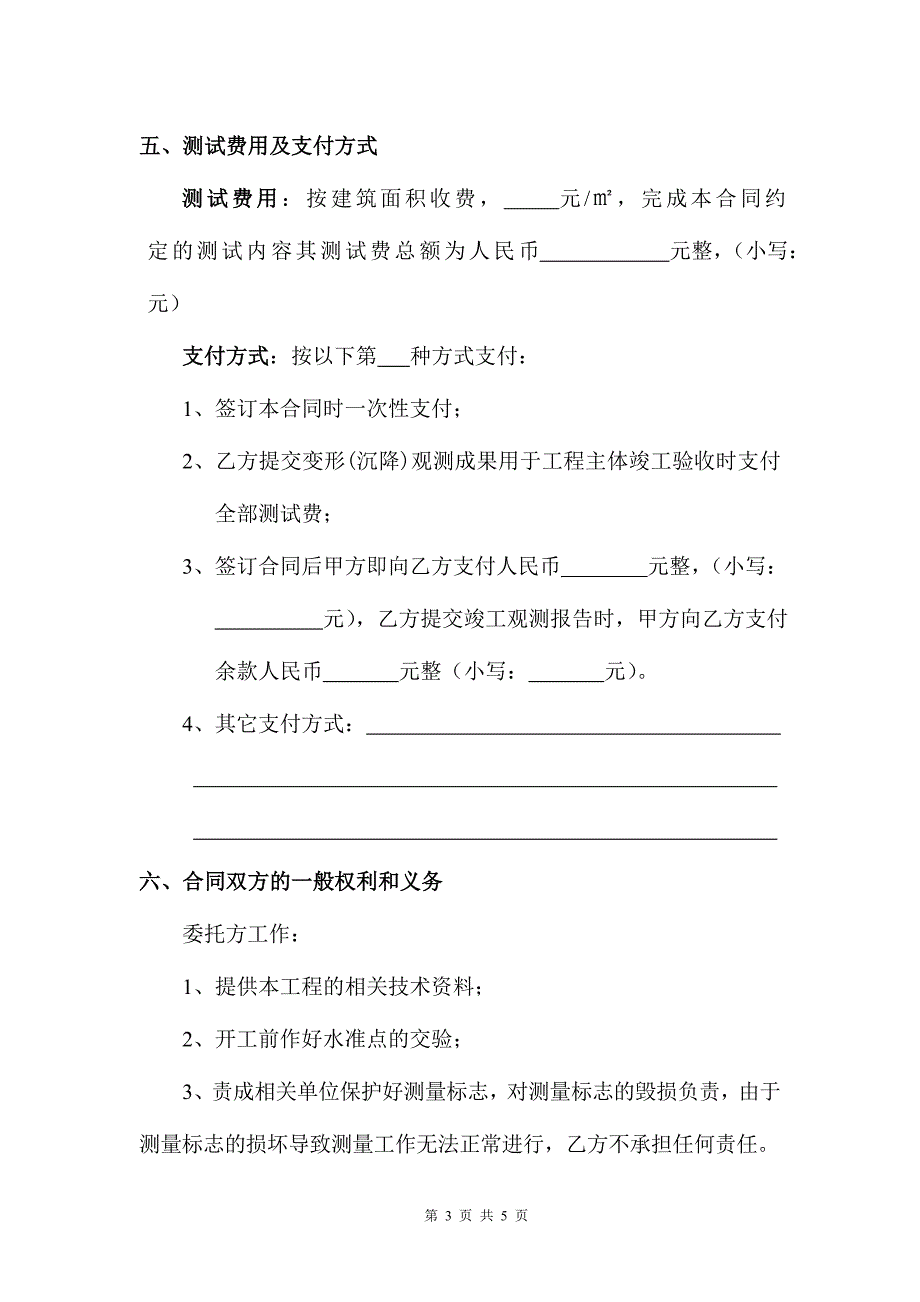 五、测试费用及支付方式
测试费用：按建筑面积收费，_____元/㎡，完成本合同约
定的测试内容其测试费总额为人民币____________元整，（小写：
元）
支付方式：按以下第___种方式支付：
1、签订本合同时一次性支付；
2、乙方提交变形(沉降)观测成果用于工程主体竣工验收时支付
全部测试费；
3、签订合同后甲方即向乙方支付人民币________元整，（小写：
__________元），乙方提交竣工观测报告时，甲方向乙方支付
余款人民币_______元整（小写：_______元）。
4、其它支付方式：______________________________________
______________________________________________________
______________________________________________________
六、合同双方的一般权利和义务
委托方工作：
1、提供本工程的相关技术资料；
2、开工前作好水准点的交验；
3、责成相关单位保护好测量标志，对测量标志的毁损负责，由于
测量标志的损坏导致测量工作无法正常进行，乙方不承担任何责任。
第 3 页 共 5 页